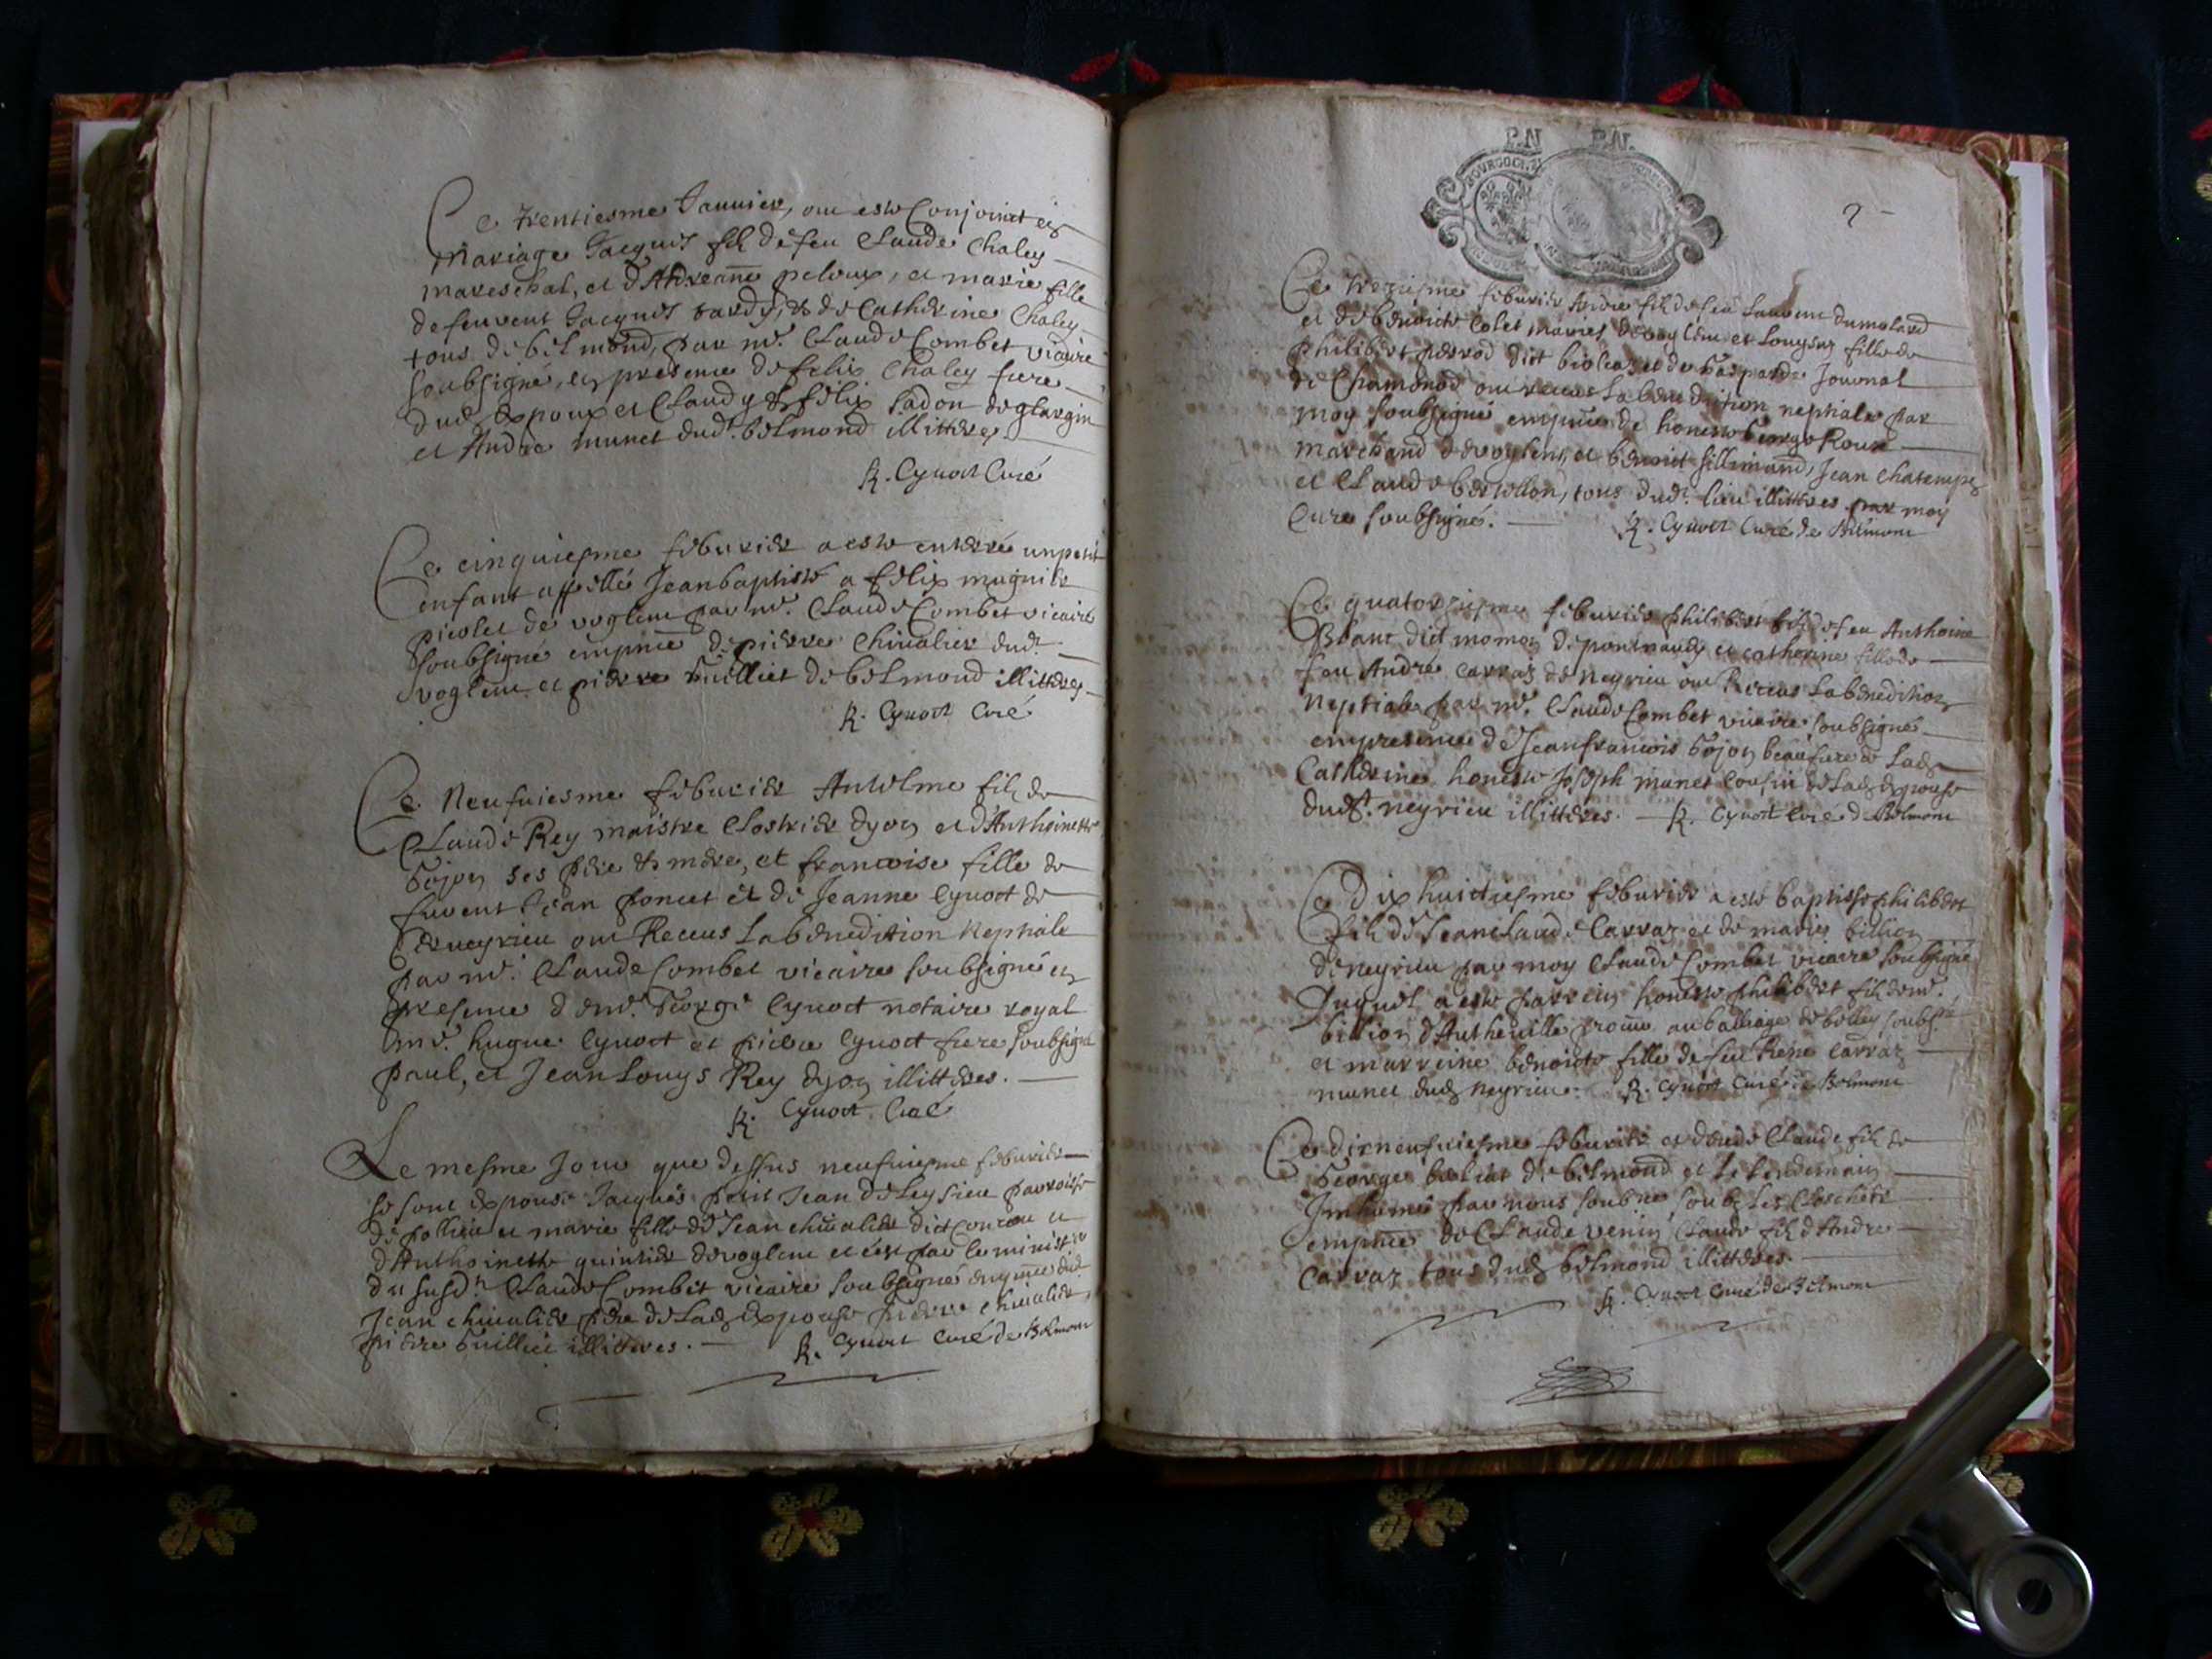 Ce trentiesme Januier, ont esté Conjoinct en
Mariage Jacques filz de feu Claude Chaley
mareschal, et d'Andreanne peloux, et marie fille
de feuvent Jacques tardy, & de Catherine Chaley
tous de belmond, par me. Claude Combet viquire
soubsigné, en presence de felix Chaley frere
dud. Expoux et Claudy & felix Ladon de glargin
et Andre munet dud. belmond illitteres.
R. Cynoct Curé
Ce cinquiesme feburier a esté enterré un petit
enfant appellé Jean baptiste a felix mugnier
picolet de voglenc par me. Claude Combet vicaire
soubsigné en pnce de pierre Chiualier dud.
voglenc et pierre Guilliet de belmond illitteres
R. Cynoct Curé
Ce Neufuiesme feburier Antelme filz de
Claude Rey maistre Clostrier dyon et d'Anthoinette
Gojon ses pere & mere, et francoise fille de
fuvent Jean poncet et de Jeanne Cynoct de
neyrieu ont Receus La benedition Neptiale
par me. Claude Combet vicaire soubsigné en
presence de me. George Cynoct notaire royal
me. hugue Cynoct et pierre Cynoct frere soubsigné
paul, et Jean Louys Rey dyon illitteres.
R. Cynoct Curé
Le mesme Jour que dessus neufuiesme feburier
se sont expousé Jacques petit Jean de Leysieu parroisse
de et marie fille de Jean chiualier dict et
d'Anthoinette quintier de voglenc et c'est par le ministre
du susdt. Claude Combet vicaire soubsigné en pnce dud.
Jean chiualier pere de Lad. Expouse pierre chiualier,
pierre Guilliet illitteres.
R. Cynoct curé de Belmont
P.N P.N.
2
Ce treziesme feburier Andre filz de feu Laurent dumolard
et de benoicte Colet mariez de voglenc et Louyse fille de
philibert perrod dict biolcaz et de Gasparde Journal
de Chamonod ont receus La benedition neptiale par
moy soubsigné en pnce de honeste George Roux
marchand de voglenc, et benoict sillimand, Jean
et Claude bertollon, tous dud. lieu illitteres par moy
Curé soubsigné. R. Cynoct Curé de Belmont
Ce quatorziesme feburier philibert filz de feu Anthoine
Blanc dict momon de et catherine fille de
feu Andre Carraz de neyrieu ont Receus La benedition
Neptiale par me. Claude Combet vicaire soubsigné
en presence de Jean francois Gojon beaufrere de Lad.
Catherine honeste Joseph munet Cousin de Lad. Expouse
dudt. neyrieu illitteres. R. Cynoct Curé de Belmont
Ce dix huictiesme feburier a esté baptisé philibert
filz de Jean Claude Carraz et de marie billion
de neyrieu par moy Claude Combet vicaire soubsigné
Duquel a esté parrein honeste philibert filz de me.
billion d'Anthuille au balliage de belley soubsné
et marreine benoicte fille de feu Rene Carraz
munet dud. neyrieu. R. Cynoct Curé de Belmont
Ce dixneufuiesme feburier est decedé Claude filz de
George de belmond et le Lendemain
Inhumé par nous soubné soubz Les Clochers
en pnce de Claude venin Claude filz d'Andre
Carraz tous dud. belmond illitteres.
R. Cynoct Curé de Belmont